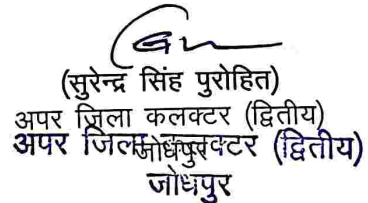 (सुरेन्द्र सिंह पुरोहित)
अपर ज़िला कलक्टर (द्वितीय)
जोधपुर
अपर जिला कलक्टर (द्वितीय)
जोधपुर